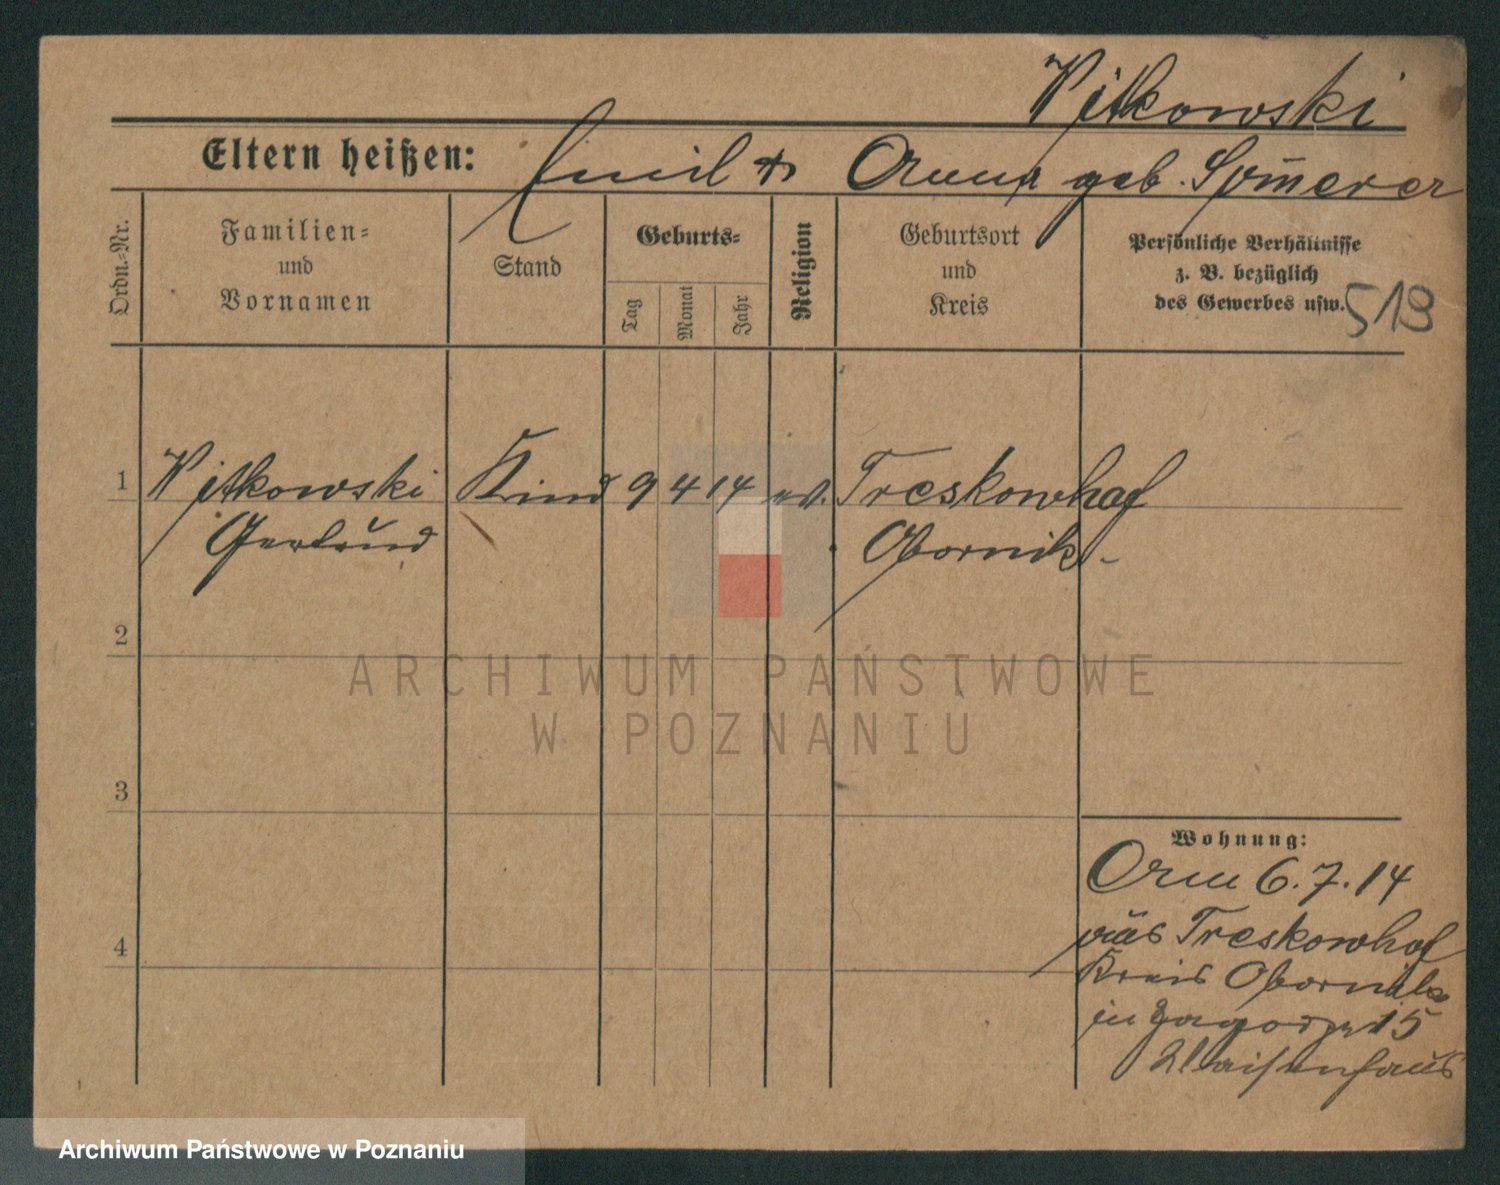 Witkowski
Eltern heißen: Emil & Anna geb. Som̄erer
Ordn.-Nr.
Familien-
und
Vornamen
Stand
Geburts-
Tag
Monat
Jahr
Religion
Geburtsort
und
Kreis
Persönliche Verhältnisse
z. B. bezüglich
des Gewerbes usw.
513
1 Witkowski Kind 9 4 14 ev. Treskowhof
Gertrud Obornik
2
3
4
Wohnung:
Am 6.7.14
aus Treskowhof
Kreis Obornik
in Zagorze 15
Waisenhaus
ARCHIWUM PAŃSTWOWE
W POZNANIU
Archiwum Państwowe w Poznaniu